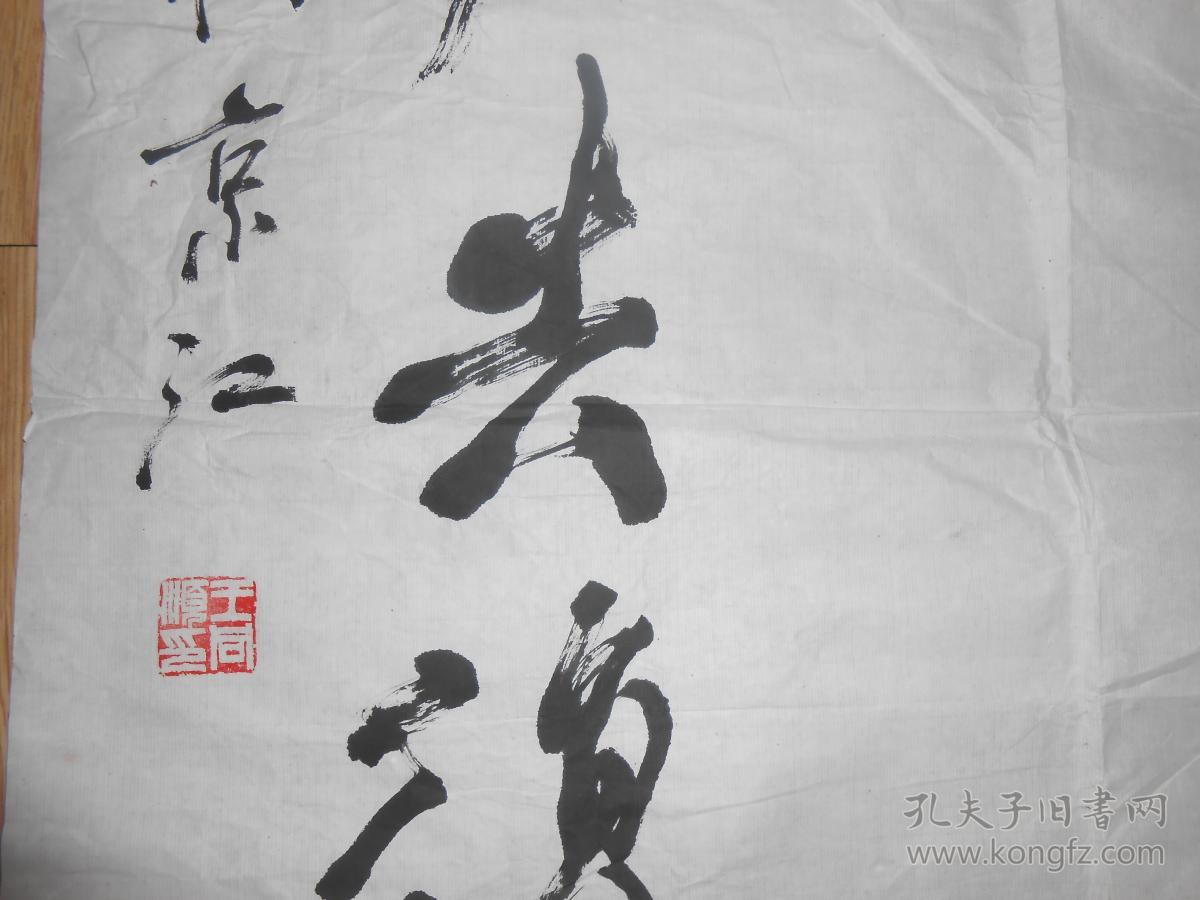 失
京江
王同
順印
孔夫子旧書网
www.kongfz.com